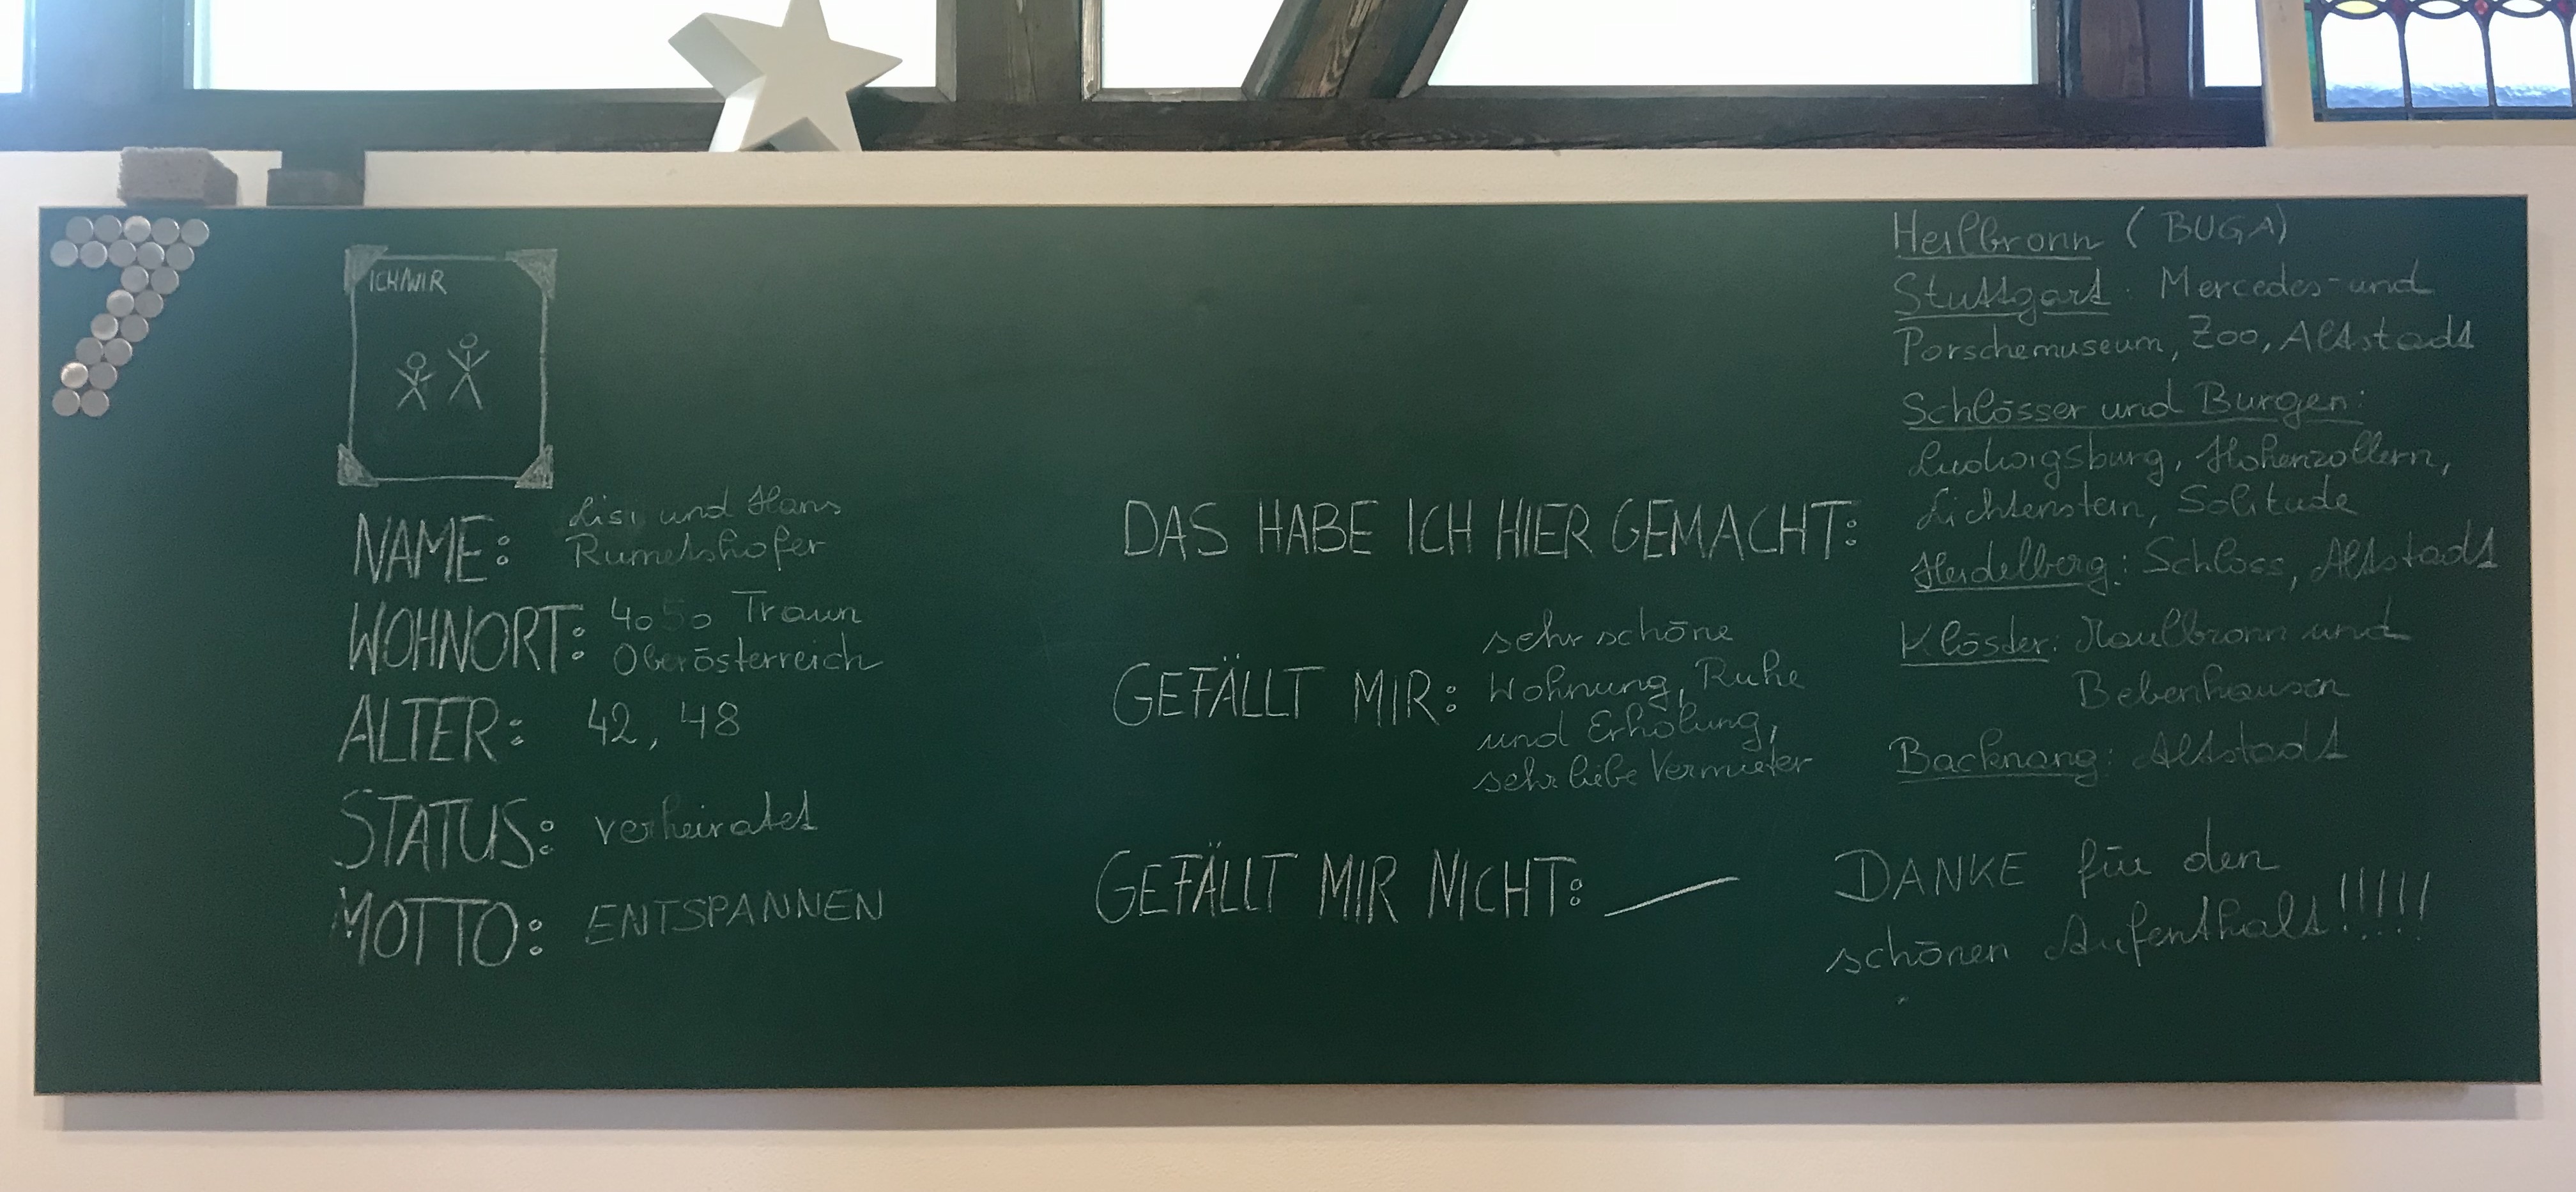 7
ICH/WIR
NAME: Lisi und Hans
Rumetshofer
WOHNORT: 4050 Traun
Oberösterreich
ALTER: 42, 48
STATUS: verheiratet
MOTTO: ENTSPANNEN
DAS HABE ICH HIER GEMACHT:
Heilbronn (BUGA)
Stuttgart: Mercedes- und
Porschemuseum, Zoo, Altstadt
Schlösser und Burgen:
Ludwigsburg, Hohenzollern,
Lichtenstein, Solitude
Heidelberg: Schloss, Altstadt
Klöster: Maulbronn und
Bebenhausen
Backnang: Altstadt
GEFÄLLT MIR: sehr schöne
Wohnung, Ruhe
und Erholung,
sehr liebe Vermieter
GEFÄLLT MIR NICHT: —
DANKE für den
schönen Aufenthalt!!!!!